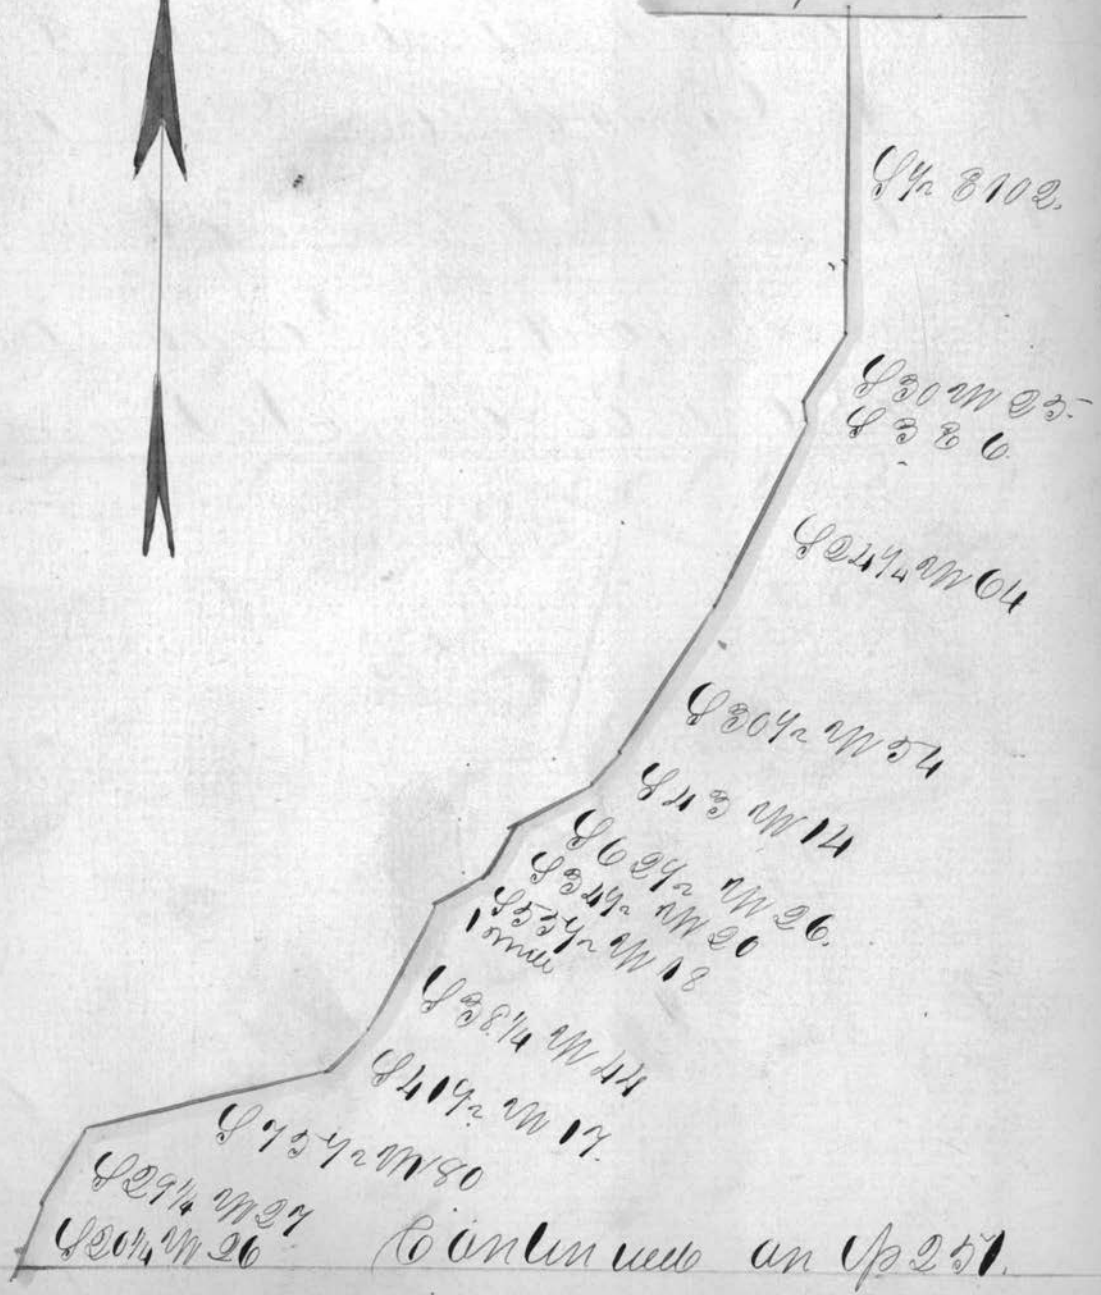 S ½ E 102.
S 30 W 25.
S 3 E 6
S 24 ¼ W 64
S 30 ½ W 54
S 43 W 14
S 62 ½ W 26.
S 34 ½ W 20
S 53 ½ W 18
1 mile
S 38 ¼ W 44
S 41 ½ W 17.
S 75 ½ W 80
S 29 ¼ W 27
S 20 ¼ W 26
Continued on p 251.